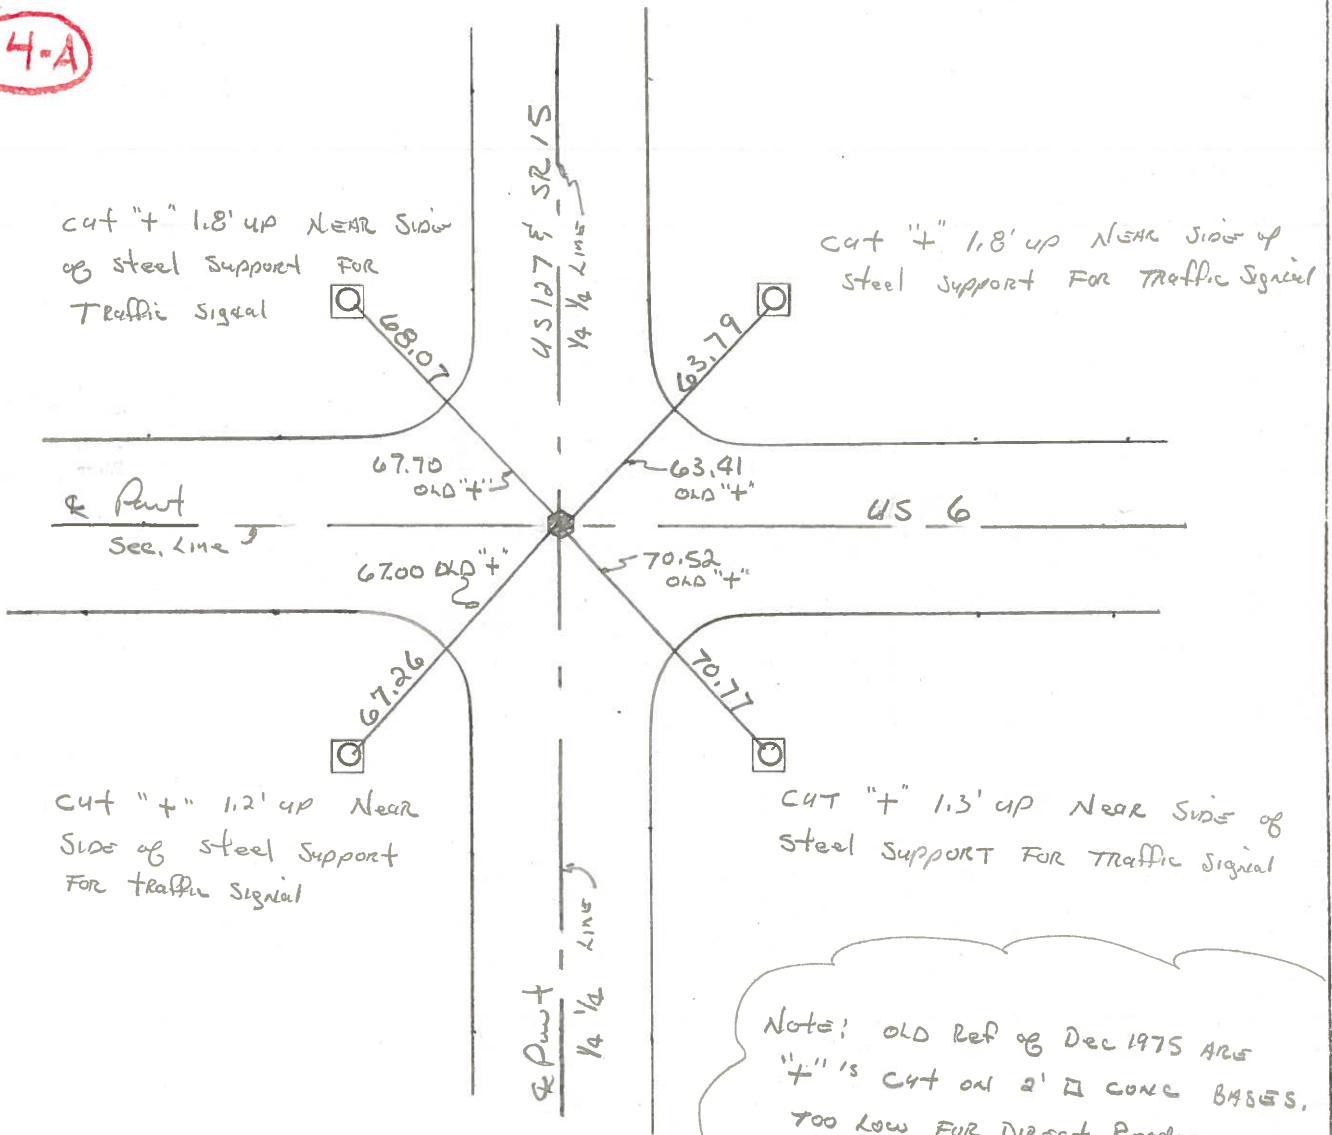 4-A
US 127 & SR 15
¼ ¼ Line
cut "+" 1.8' up NEAR Side
of steel support FOR
Traffic Signal
cut "+" 1.8' up NEAR Side of
steel support FOR Traffic Signial
68.07
63.79
67.70
OLD "+"
63.41
OLD "+"
℄ Pavt
Sec. Line
US 6
67.00 OLD "+"
70.52
OLD "+"
67.26
70.77
cut "+" 1.2' up Near
SIDE of steel support
FOR traffic Signial
CUT "+" 1.3' up Near SIDE of
steel support FOR Traffic Signial
℄ Pavt
¼ ¼ Line
Note: OLD Ref of Dec 1975 ARE
"+"'s cut on 2' □ conc BASES.
Too Low FOR Direct Read